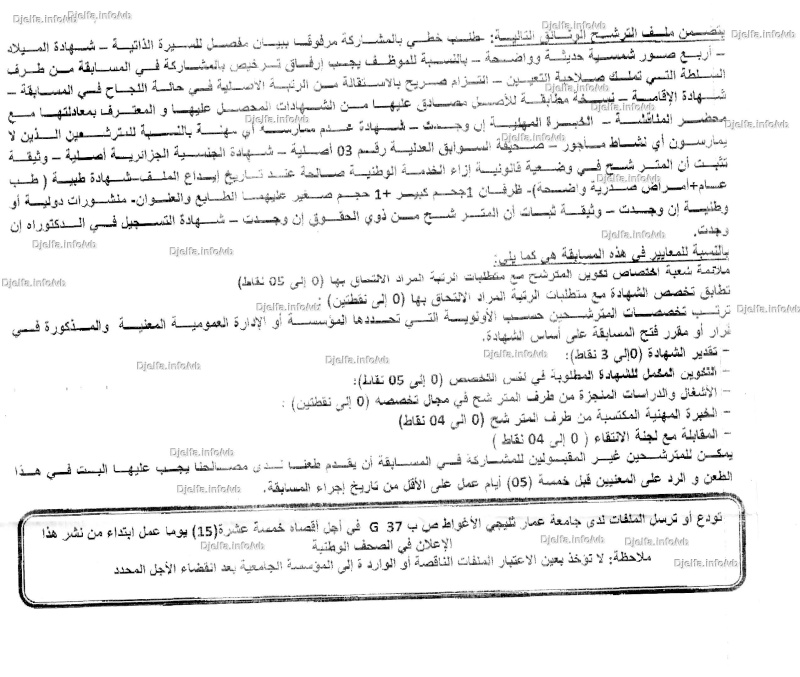 يتضمن ملف الترشح الوثائق التالية: طلب خطي بالمشاركة مرفوقا ببيان مفصل للسيرة الذاتية – شهادة الميلاد
– أربع صور شمسية حديثة وواضحة – بالنسبة للموظف يجب إرفاق ترخيص بالمشاركة في المسابقة من طرف
السلطة التي تملك صلاحية التعيين – التزام صريح بالاستقالة من الرتبة الاصلية في حالة النجاح في المسابقة –
شهادة الإقامة – نسخة مطابقة للأصل مصادق عليها من الشهادات المحصل عليها و المعترف بمعادلتها مع
محضر المناقشة – الخبرة المهنية إن وجدت – شهادة عدم ممارسة أي مهنة بالنسبة للمترشحين الذين لا
يمارسون أي نشاط مأجور – صحيفة السوابق العدلية رقم 03 أصلية – شهادة الجنسية الجزائرية أصلية – وثيقة
تثبت أن المترشح في وضعية قانونية إزاء الخدمة الوطنية صالحة عند تاريخ إيداع الملف-شهادة طبية ( طب
عام+أمراض صدرية واضحة)- ظرفان 1حجم كبير +1 حجم صغير عليهما الطابع والعنوان- منشورات دولية أو
وطنية إن وجدت – وثيقة ثبات أن المترشح من ذوي الحقوق إن وجدت – شهادة التسجيل في الدكتوراه إن
وجدت.
بالنسبة للمعايير في هذه المسابقة هي كما يلي:
ملائمة شعبة اختصاص تكوين المترشح مع متطلبات الرتبة المراد الالتحاق بها (0 إلى 05 نقاط)
تطابق تخصص الشهادة مع متطلبات الرتبة المراد الالتحاق بها (0 إلى نقطتين) :
ترتب تخصصات المترشحين حسب الأولوية التي تحددها المؤسسة أو الإدارة العمومية المعنية والمذكورة في
قرار أو مقرر فتح المسابقة على أساس الشهادة.
– تقدير الشهادة (0إلى 3 نقاط):
– التكوين المكمل للشهادة المطلوبة في نفس التخصص (0 إلى 05 نقاط):
– الأشغال والدراسات المنجزة من طرف المترشح في مجال تخصصه (0 إلى نقطتين) :
– الخبرة المهنية المكتسبة من طرف المترشح (0 الى 04 نقاط)
– المقابلة مع لجنة الانتقاء ( 0 إلى 04 نقاط )
يمكن للمترشحين غير المقبولين للمشاركة في المسابقة أن يقدم طعنا لدى مصالحنا يجب عليها البت في هذا
الطعن و الرد على المعنيين قبل خمسة (05) أيام عمل على الأقل من تاريخ إجراء المسابقة.
تودع أو ترسل الملفات لدى جامعة عمار ثليجي الأغواط ص ب 37 G في أجل أقصاه خمسة عشرة(15) يوما عمل ابتداء من نشر هذا
الإعلان في الصحف الوطنية
ملاحظة: لا تؤخذ بعين الاعتبار الملفات الناقصة أو الواردة إلى المؤسسة الجامعية بعد انقضاء الأجل المحدد